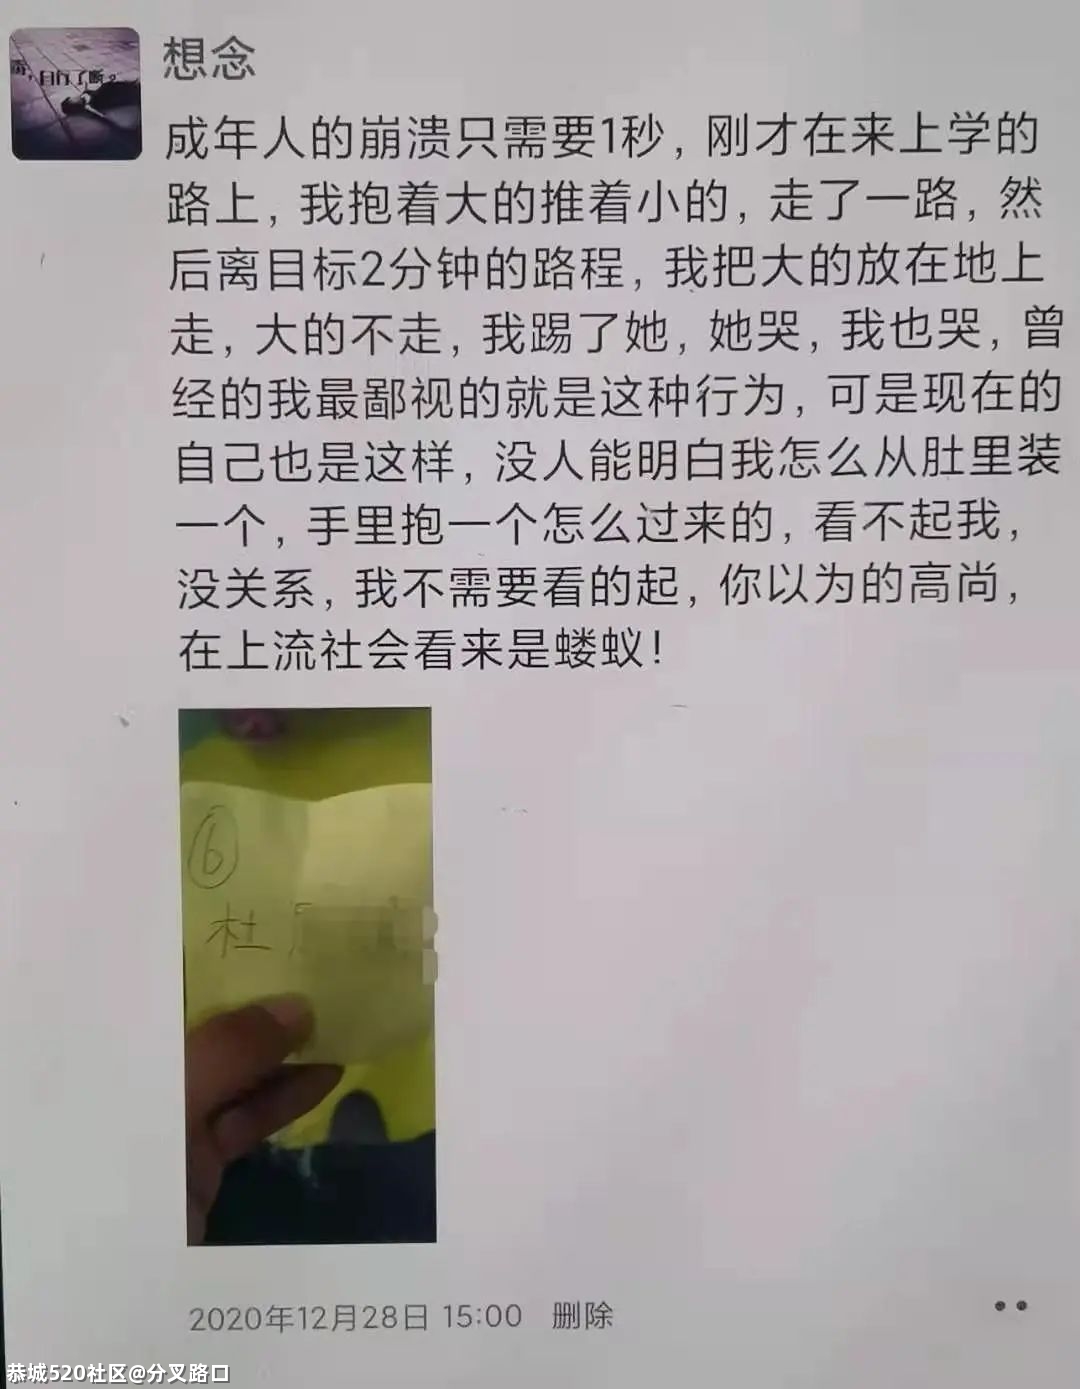 想念
成年人的崩溃只需要1秒，刚才在来上学的
路上，我抱着大的推着小的，走了一路，然
后离目标2分钟的路程，我把大的放在地上
走，大的不走，我踢了她，她哭，我也哭，曾
经的我最鄙视的就是这种行为，可是现在的
自己也是这样，没人能明白我怎么从肚里装
一个，手里抱一个怎么过来的，看不起我，
没关系，我不需要看的起，你以为的高尚，
在上流社会看来是蝼蚁！
6
杜
2020年12月28日 15:00 删除
恭城520社区@分叉路口